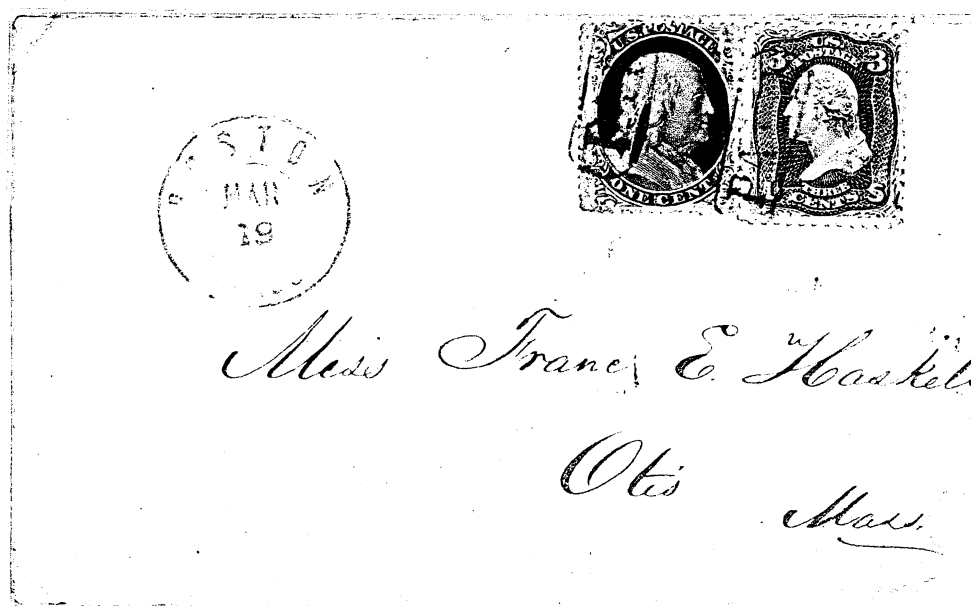 U.S. POSTAGE
ONE CENT
3 U.S. 3
POSTAGE
THREE
CENTS
BOSTON
MAR
19
Miss Franc E. Haskell
Otis
Mass.